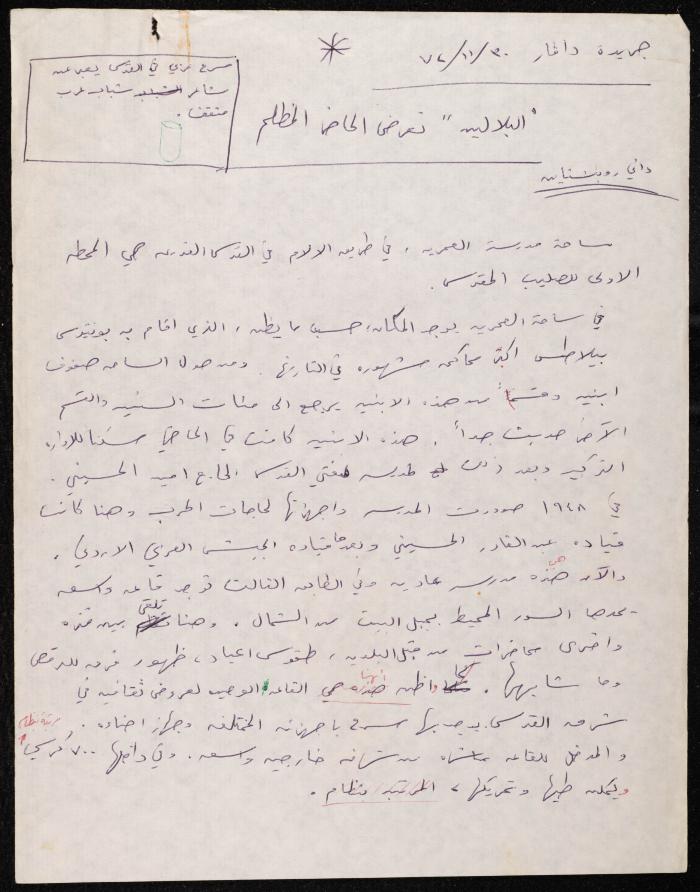 جريدة دافار ٣٠/١١/٧٢
مسرح عربي في القدس يعبر عن
مشاعر شباب عرب
مثقف .
"البلالين" تعرض الحاضر المظلم
داني روبنشتاين
ساحة مدرسة العمريه ، في طريق الالام في القدس القديمه هي المحطه
الاولى للصليب المقدس .
في ساحة العمريه يوجد المكان ، حسب ما يظن ، الذي اقام به بونتيوس
بيلاطس اكبر محاكمه مشهوره في التاريخ . ومن حول الساحه صفوف
ابنيه وقسماً من هذه الابنيه يرجع الى مئات السنين والقسم
الآخر حديث جداً . هذه الابنيه كانت في الماضي سكنا للاداره
التركيه وبعد ذلك مدرسه لمفتي القدس الحاج امين الحسيني .
في ١٩٤٨ صودرت المدرسه واجهزتها لحاجات الحرب وهنا كانت
قياده عبد القادر الحسيني وبعدها قياده الجيش العربي الاردني .
والآن هذه هي مدرسه عاديه وفي الطابق الثالث توجد قاعه واسعه
يحدها السور المحيط بجبل البيت من الشمال . وهنا تلقى بين فتره
واخرى محاضرات من قبل البلديه ، طقوس اعياد ، ظهور فرقه للرقص
وما شابهها . كما اظن انها هي القاعه الوحيده لعروض ثقافيه في
شرقي القدس يوجد بها مسرح باجهزته المختلفه وجهاز اضاءه .
والمدخل للقاعه من شرفه خارجيه واسعه . وفي داخلها ٧٠٠ كرسي مرتبة بنظام
ويمكن طيها وتحريكها ، المرتبه بنظام .